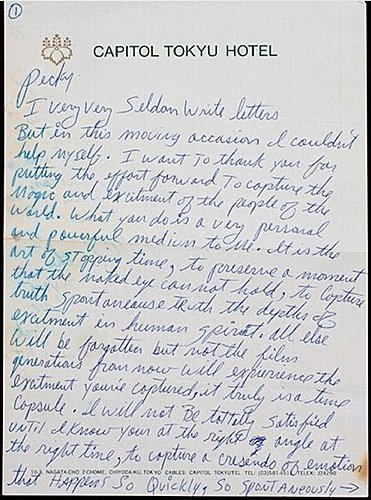 1
CAPITOL TOKYU HOTEL
I very very Seldon Write letters
But in this moving occasion I couldn't
help myself. I want to thank you for
putting the effort forward To capture the
Magic and excitment of the people of the
world. What you do is a very personal
and powerful medium to me. It is the
art of stopping time, to preserve a moment
that the naked eye can not hold, to capture
truth spontaneouse truth the depths of
excitment in human spirit. All else
will be forgotten but not the film
generations from now will experience the
excitment you've captured, it truly is a time
Capsule. I will not Be totally satisfied
until I know your at the right angle at
the right time, to capture a cresendo of emotion
10-3, NAGATACHO 2 CHOME, CHIYODA-KU, TOKYO CABLES: CAPITOL TOKYUTEL TEL: TELEX:
that Happens So Quickly, So Spontaneously →